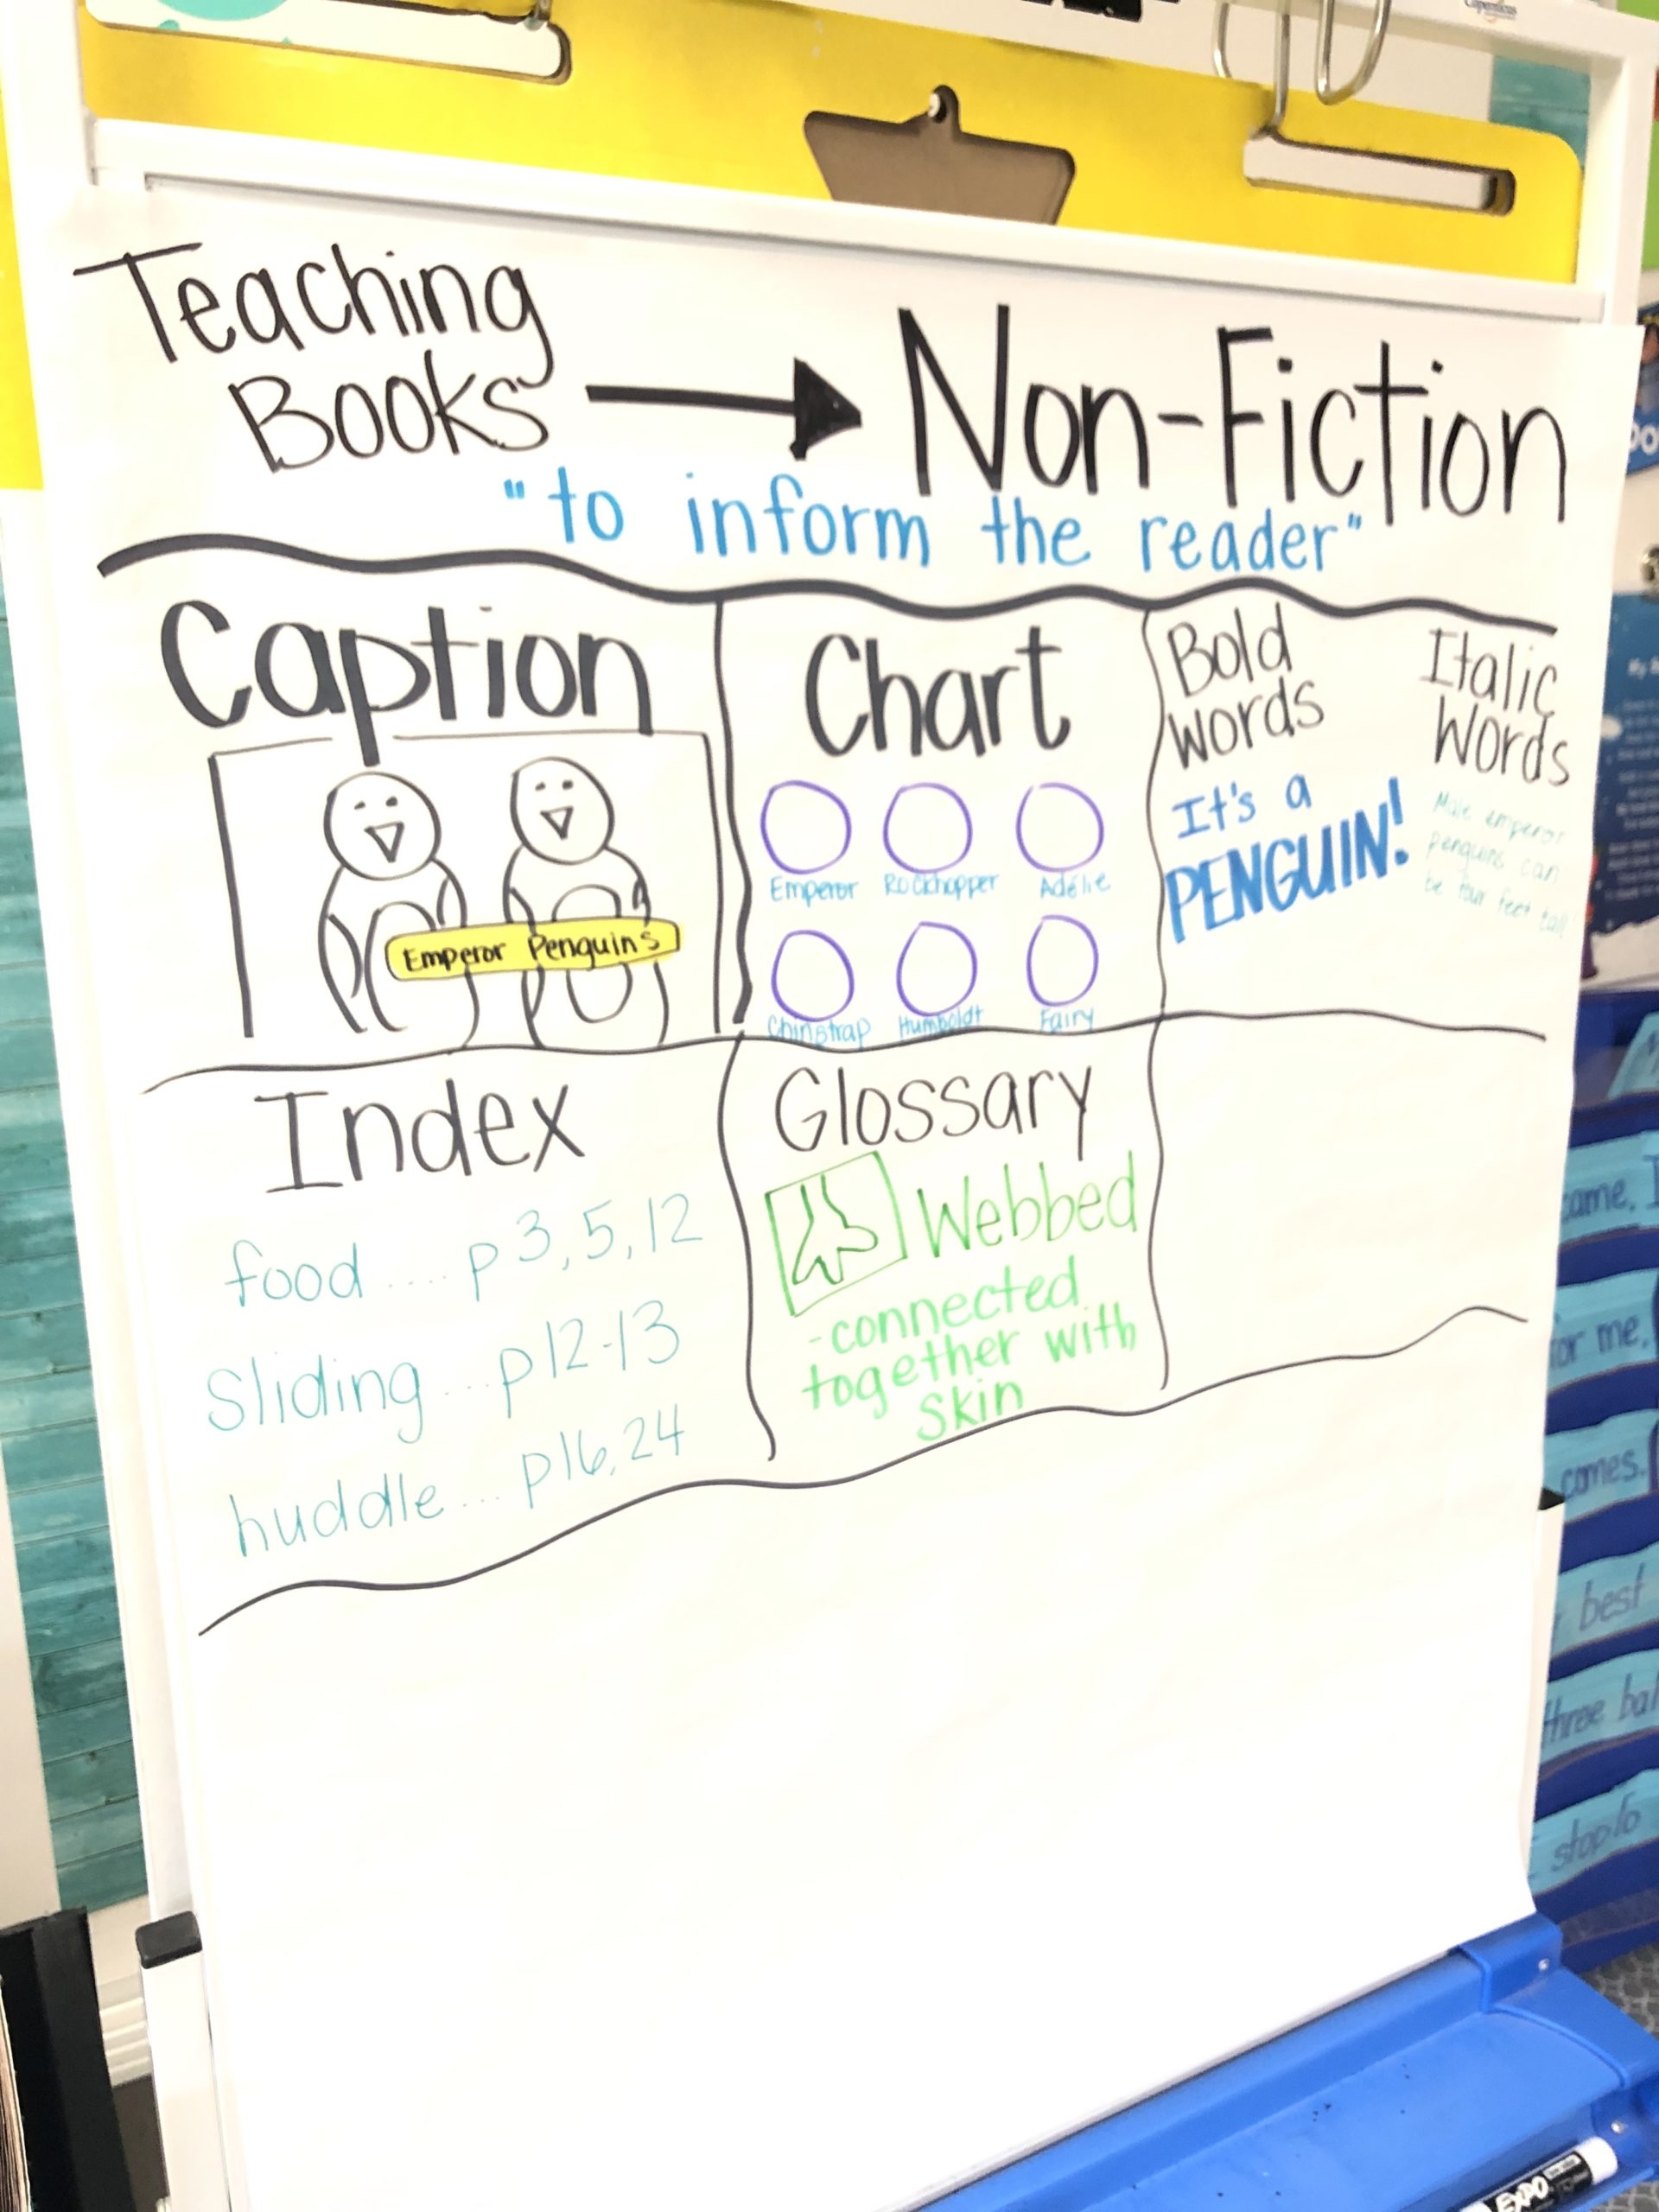 Copernicus
Teaching
Books
Non-Fiction
"to inform the reader"
Caption
Emperor Penguins
Chart
Emperor Rockhopper Adélie
Chinstrap Humboldt Fairy
Bold
words
It's a
PENGUIN!
Italic
Words
Male emperor
penguins can
be four feet tall!
Index
food .... p 3, 5, 12
Sliding ... p 12-13
huddle ... p 16, 24
Glossary
Webbed
- connected
together with
Skin
came, I
for me.
comes.
best
three
EXPO